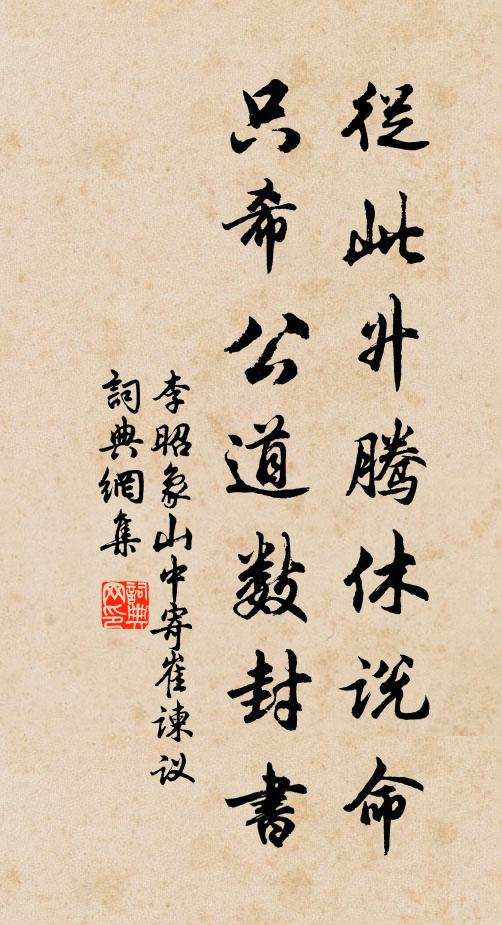 從此升腾休说命
只希公道数封書
李昭象山中寄崔谏议
詞典網集
詞典網印